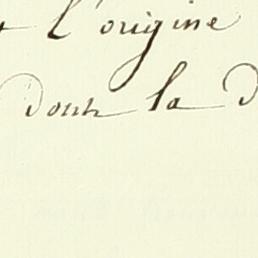 l'origine
dont la